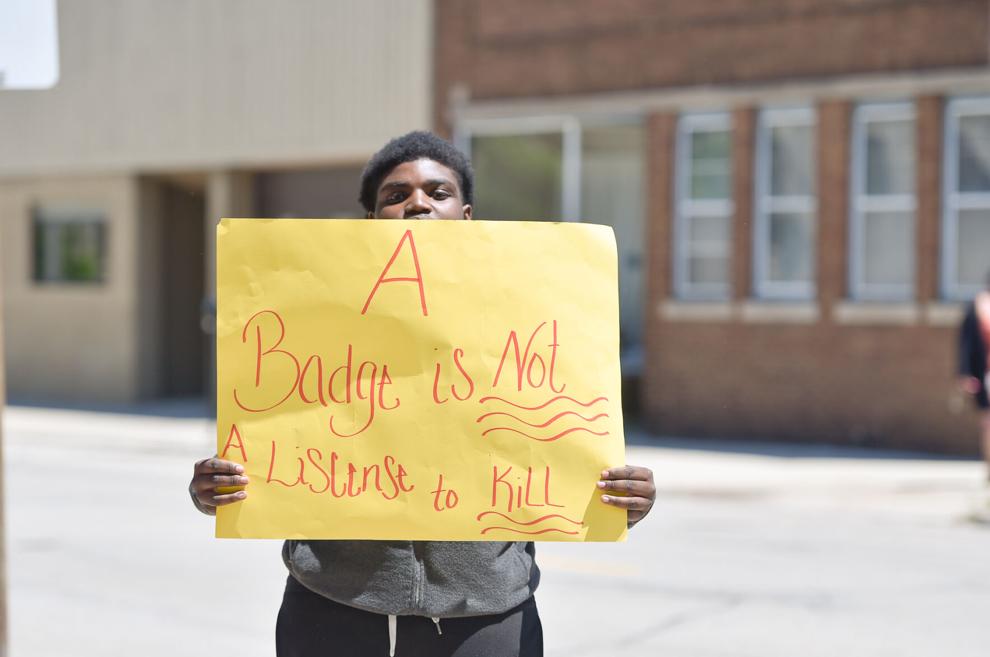 A
Badge is Not
A Liscense to Kill